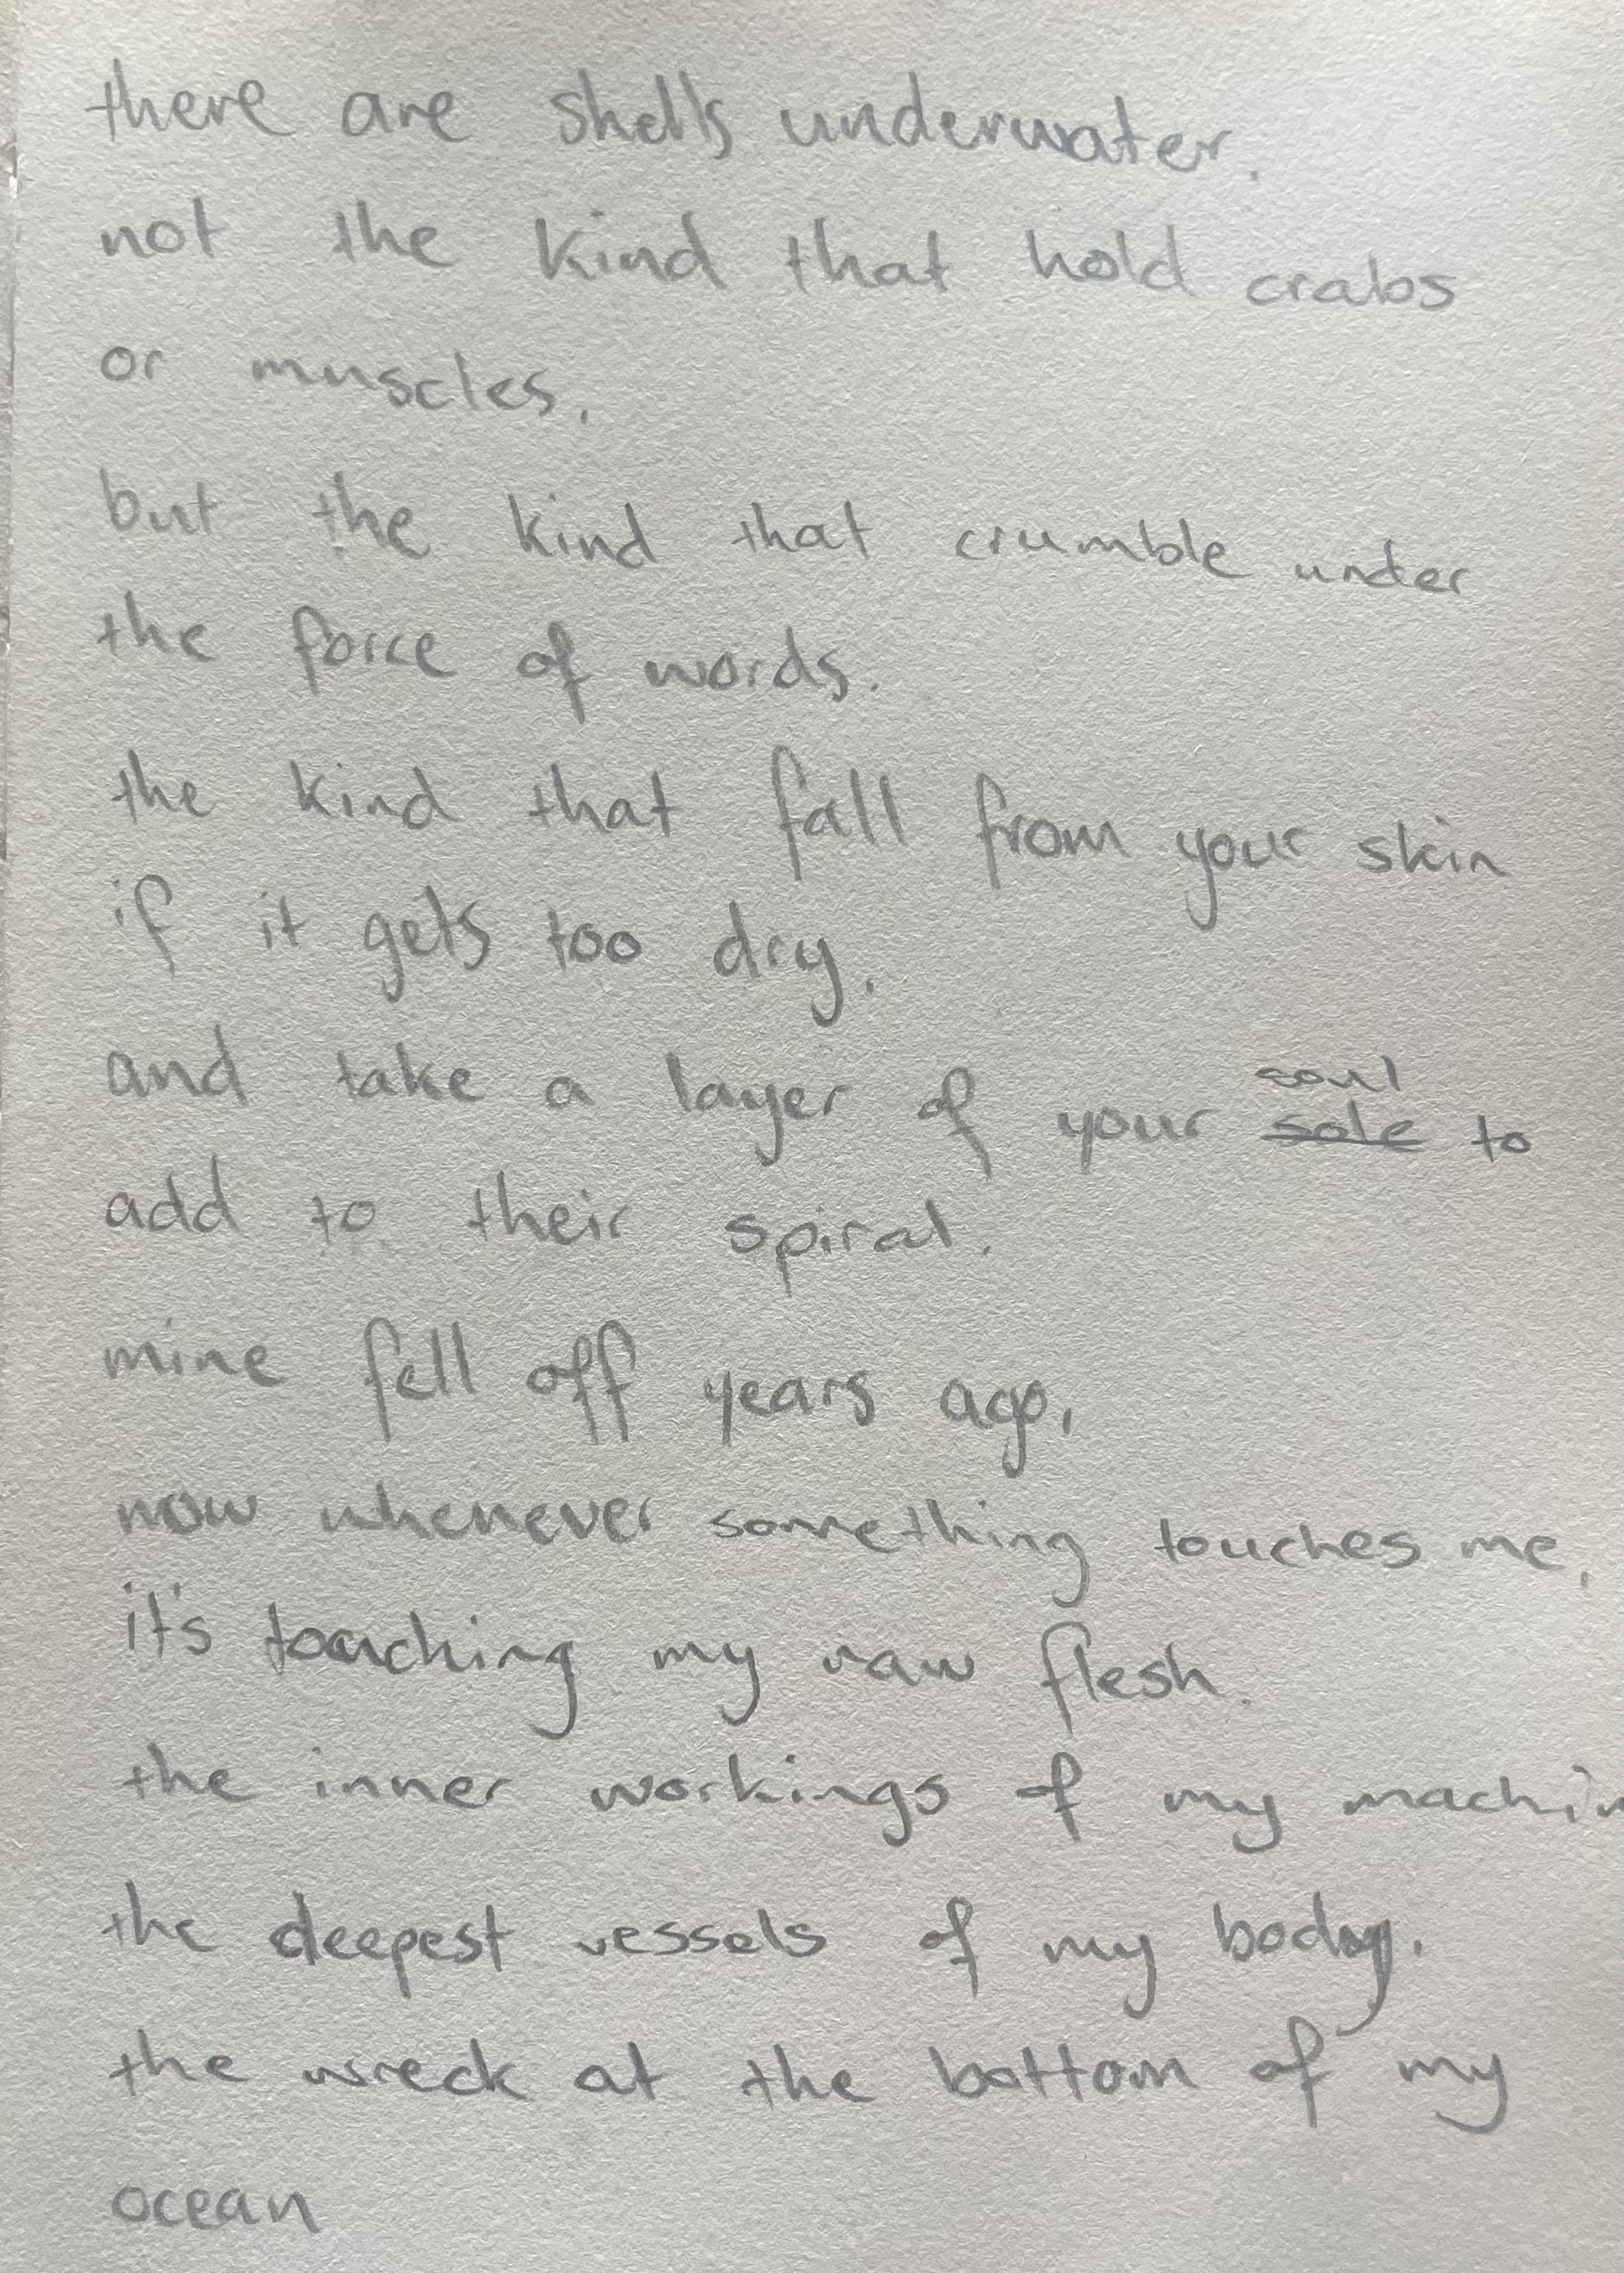 there are shells underwater.
not the kind that hold crabs
or muscles.
but the kind that crumble under
the force of words.
the kind that fall from your skin
if it gets too dry.
and take a layer of your sole soul to
add to their spiral.
mine fell off years ago.
now whenever something touches me,
it's touching my raw flesh.
the inner workings of my machin
the deepest vessels of my body.
the wreck at the bottom of my
ocean